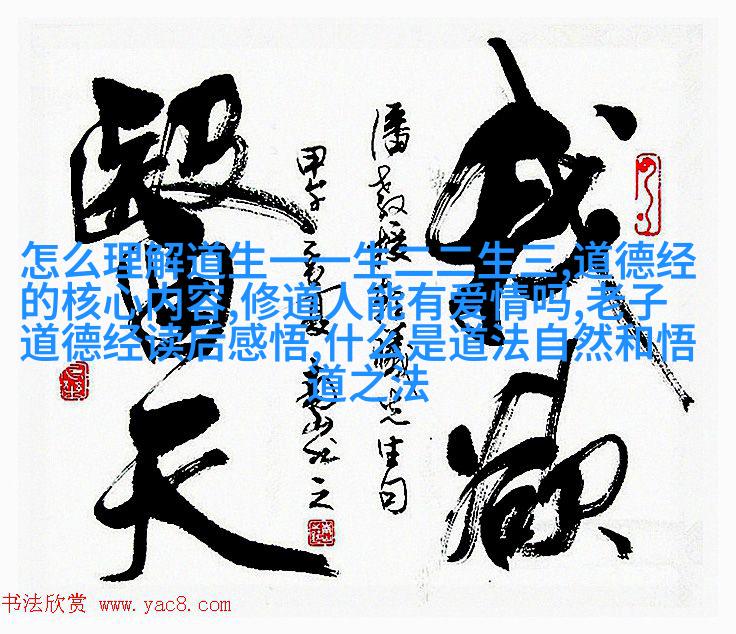 我欲
醫天
潘教授 先生句
甲午 之
怎么理解道生一一生二二生三,道德经
的核心内容,修道人能有爱情吗,老子
道德经读后感悟,什么是道法自然和悟
道之法
书法欣赏 www.yac8.com